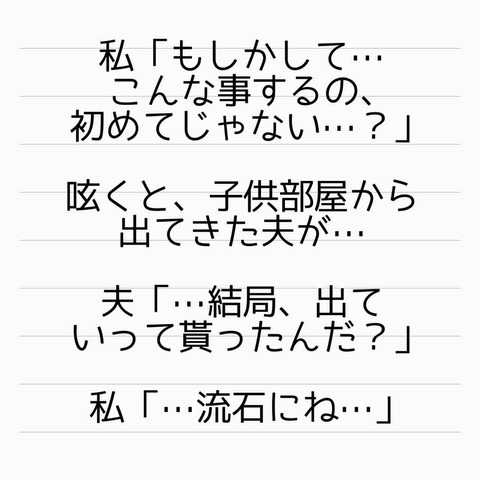 私「もしかして…
こんな事するの、
初めてじゃない…？」
呟くと、子供部屋から
出てきた夫が…
夫「…結局、出て
いって貰ったんだ？」
私「…流石にね…」